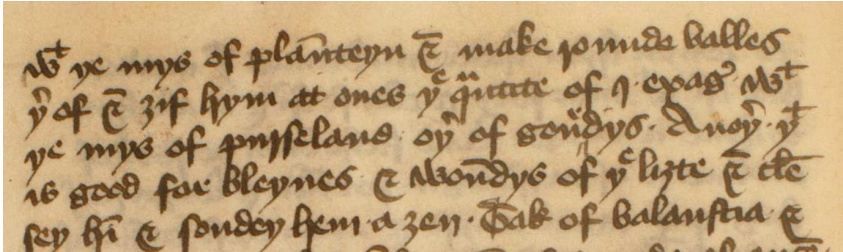 wᵗ ye iuys of plāteyn & make rounde balles
yʳ of & ȝif hym at ones yᵉ qᵃntite of j · exagˀ wᵗ
ye iuys of purselane oyʳ of gourdys · Anoyʳ · yᵗ
is good for bleynes & woūdys of yᵉ liȝte & clē
sey hī & soudey hem a ȝen · Tak of balaustia · &